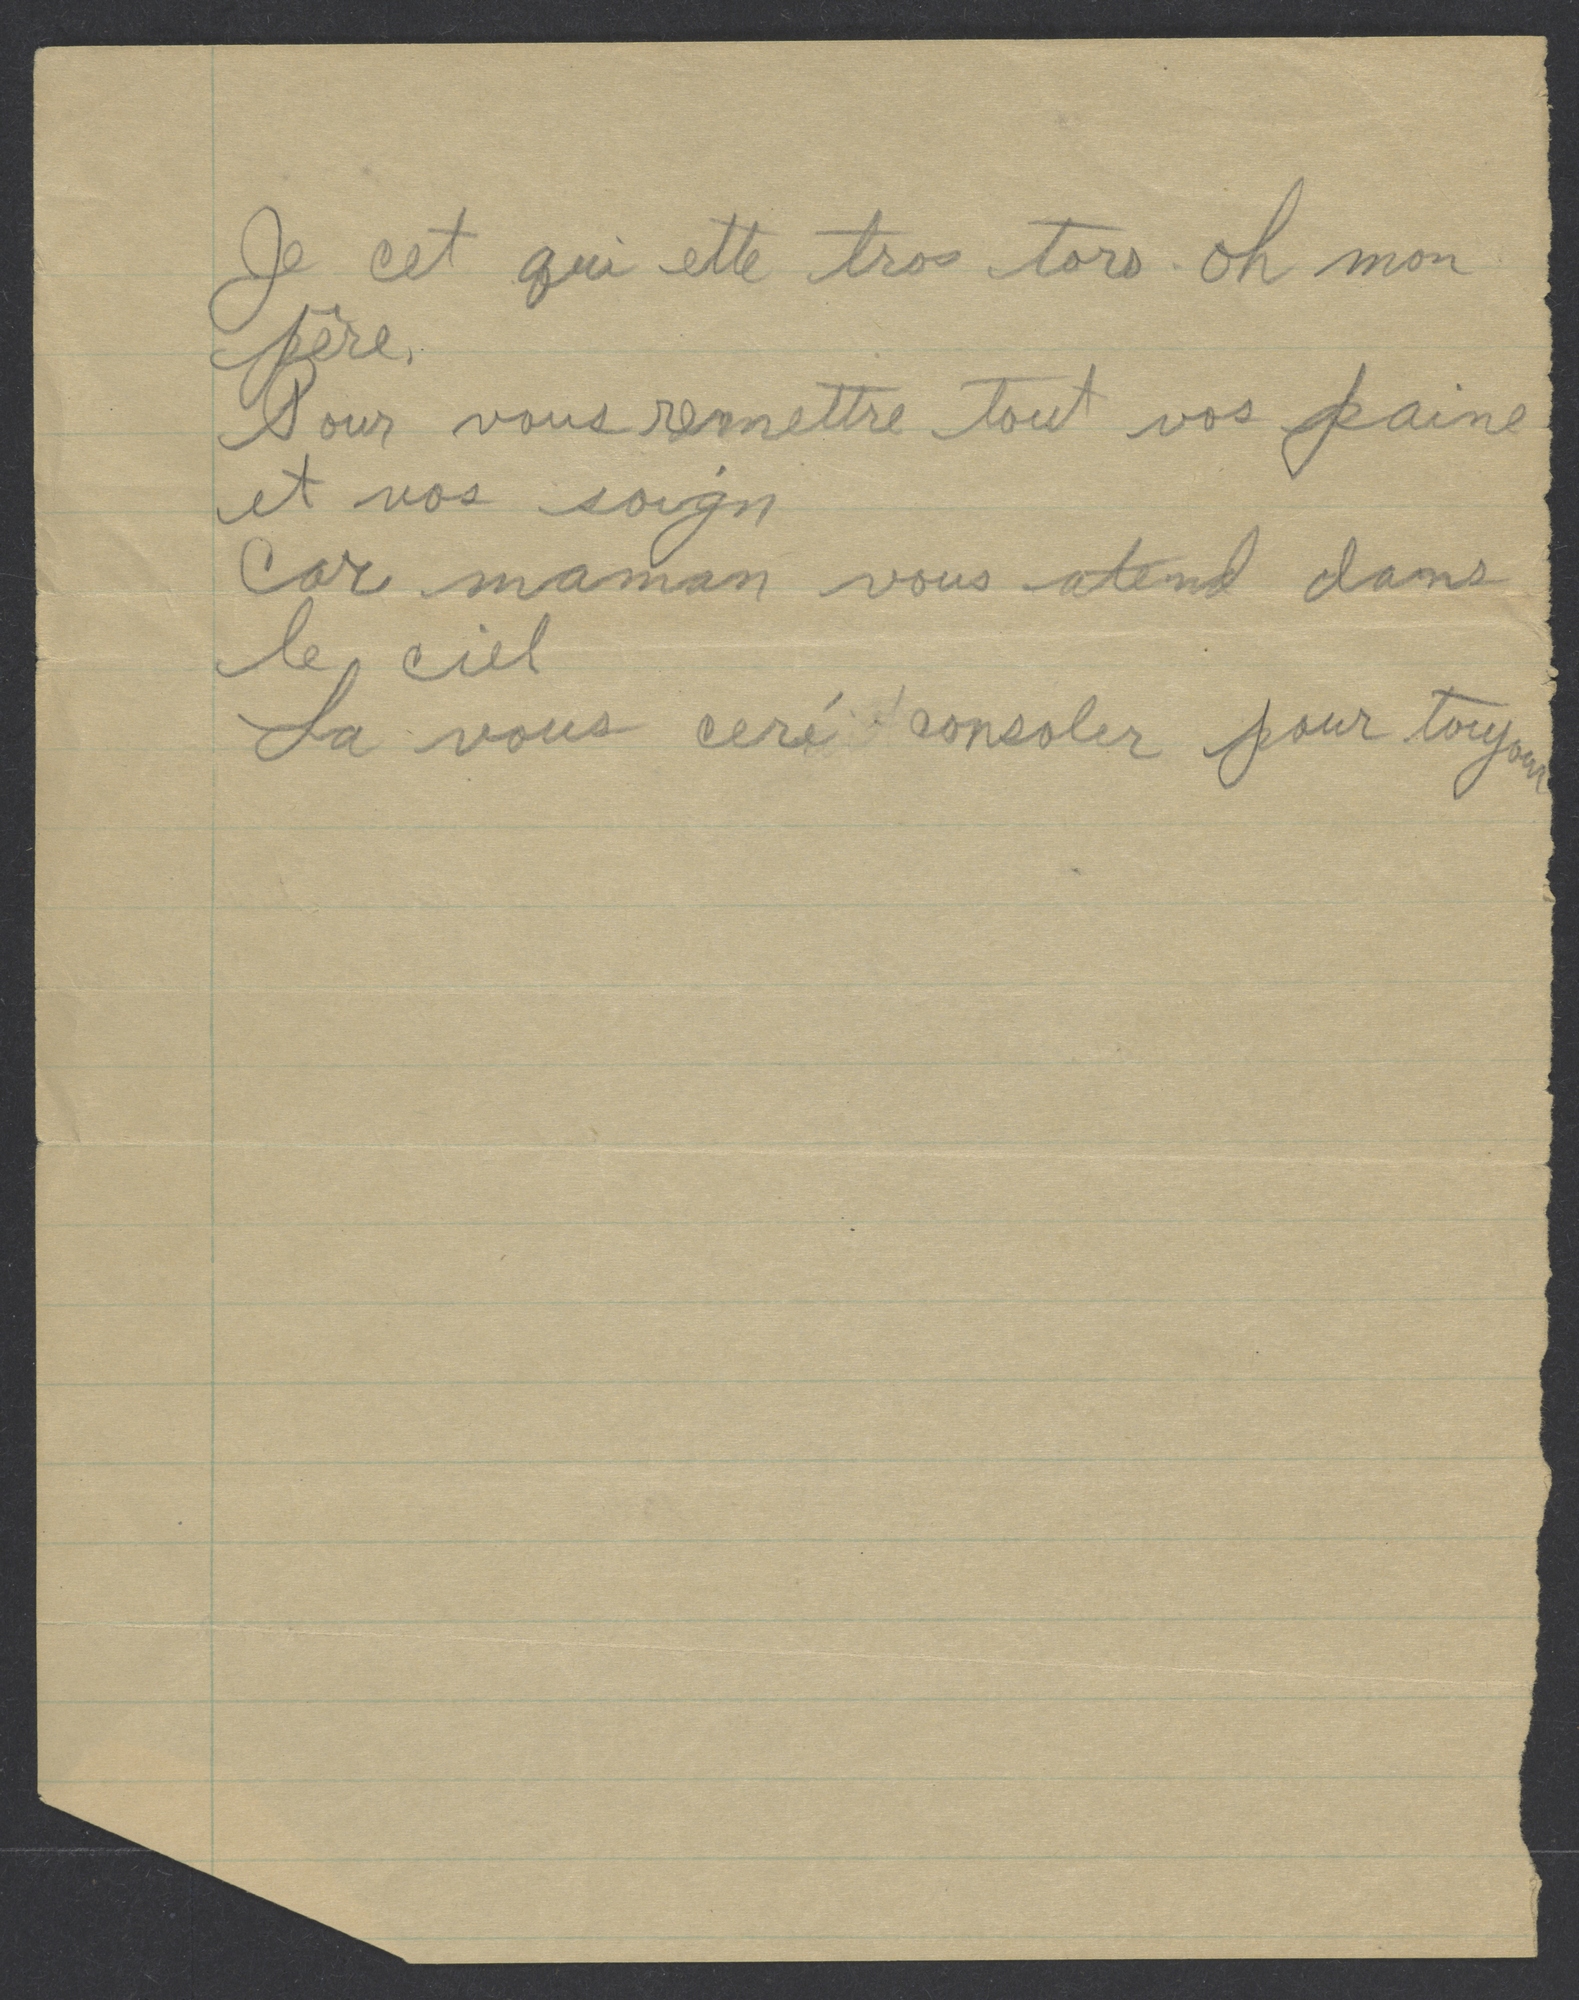 Je cet qui ette tros tars oh mon
père.
Pour vous remettre tout vos paine
et vos soign
Car maman vous atend dans
le ciel
La vous ceré consoler pour toujour